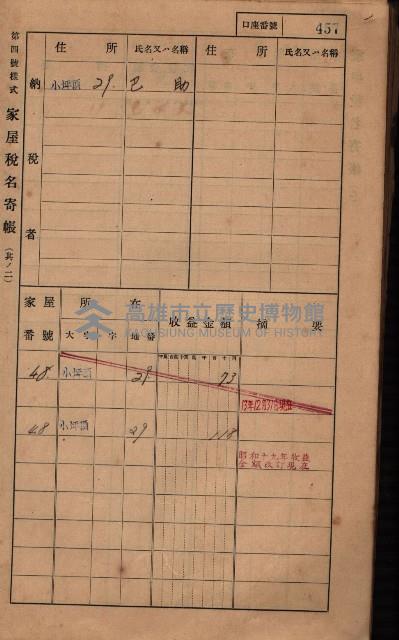 口座番號 457
第四號樣式 家屋稅名寄帳 (其ノ二)
納稅者
住所 氏名又ハ名稱 住所 氏名又ハ名稱
小坪頂 29 巴 助
家屋番號 所在 收益金額 摘要
大字 字 地番
48 小坪頂 29 73
13年12月31日現在
48 小坪頂 29 118
昭和十九年收益
金額改訂現在
高雄市立歷史博物館
KAOHSIUNG MUSEUM OF HISTORY